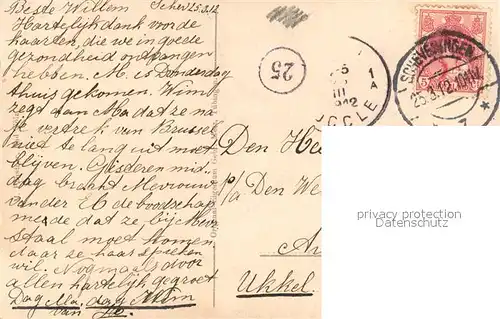 Beste Willem Schev. 25.3.12
Hartelijk dank voor de
kaarten, die we in goede
gezondheid ontvangen
hebben. M. is Donderdag
thuis gekomen. Wim
zegt aan Ma dat ze na
je vertrek van Brussel
niet te lang uit moet
blijven. Gisteren mid-
dag bracht Mevrouw
van der de boodschap
mede dat ze bij Mevr
Staal moet komen
daar ze haar spreken
wil. Nogmaals door
allen hartelijk gegroet
Dag Ma, dag Wim
van
25
1
A
III
1912
UCCLE
SCHEVENINGEN
25.3.12. 10-11V
5
Den He
p/a Den We
Ukkel.
privacy protection
Datenschutz